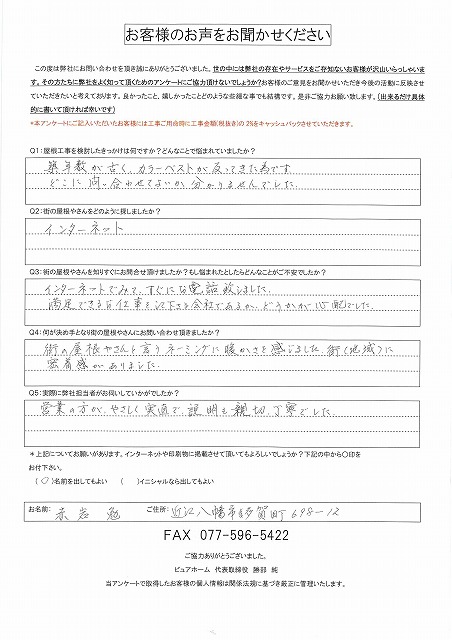 お客様のお声をお聞かせください
この度は弊社にお問い合わせを頂き誠にありがとうございました。世の中には弊社の存在やサービスをご存知ないお客様が沢山いらっしゃいま
す。その方たちに弊社をよく知って頂くためのアンケートにご協力頂けないでしょうか?お客様のご意見をお聞かせいただき今後の活動に反映させ
ていただきたいと考えております。良かったこと、嬉しかったことどのような些細な事でも結構です。是非ご協力お願い致します。(出来るだけ具体
的に書いて頂ければ幸いです)
*本アンケートにご記入いただいたお客様には工事ご用命時に工事金額(税抜き)の2%をキャッシュバックさせていただきます。
Q1:屋根工事を検討したきっかけは何ですか?どんなことで悩まれていましたか?
築年数が古く、カラーベストが反ってきた為です。
どこに問い合わせてよいか分かりませんでした。
Q2:街の屋根やさんをどのように探しましたか?
インターネット
Q3:街の屋根やさんを知りすぐにお問合せ頂けましたか?もし悩まれたとしたらどんなことがご不安でしたか?
インターネットでみて、すぐにな電話致しました。
満足できるお仕事を下さる会社であるか、どうかが心配でした。
Q4:何が決め手となり街の屋根やさんにお問い合わせ頂きましたか?
街の屋根やさんと言うネーミングに暖かさを感じました。街(地域)に
密着感がありました。
Q5:実際に弊社担当者がお伺いしていかがでしたか?
営業の方が、やさしく実直で、説明も親切、丁寧でした。
*上記についてお願いがあります。インターネットや印刷物に掲載させて頂いてもよろしいでしょうか?下記の中から〇印を
お付下さい。
(〇)名前を出してもよい ( )イニシャルなら出してもよい
お名前: 赤岩 勉 ご住所: 近江八幡市多賀町698-12
FAX 077-596-5422
ご協力ありがとうございました。
ピュアホーム 代表取締役 勝部 純
当アンケートで取得したお客様の個人情報は関係法規に基づき厳正に管理いたします。